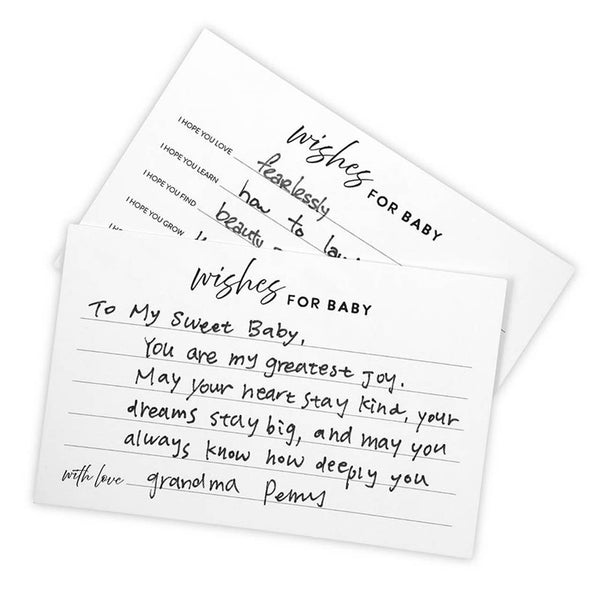 wishes FOR BABY
I HOPE YOU LOVE fearlessly
I HOPE YOU LEARN how to
I HOPE YOU FIND beauty
I HOPE YOU GROW
wishes FOR BABY
To My Sweet Baby,
You are my greatest Joy.
May your heart stay kind, your
dreams stay big, and may you
always know how deeply you
with love grandma Penny